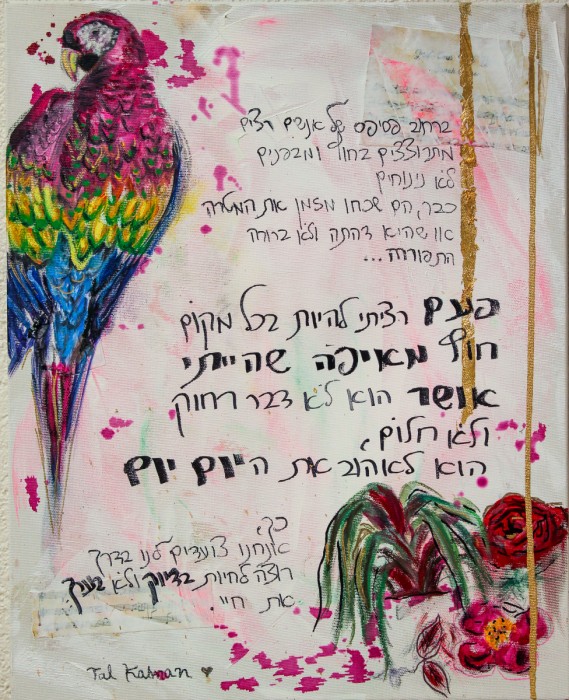 ברחוב פסיפס של אנשים רצים
מתרוצצים בחוץ ומבפנים
לא נינוחים
כבר, הם שכחו מזמן את המטרה
או שהיא דהתה ולא ברורה
התפוררה...
פעם רציתי להיות בכל מקום
חוץ מאיפה שהייתי
אושר הוא לא דבר רחוק
ולא חלום,
הוא לאהוב את היום יום
כך,
אנחנו צועדים לנו בדרך
רוצה לחיות בדיוק ולא בערך
את חיי.
Tal Katman